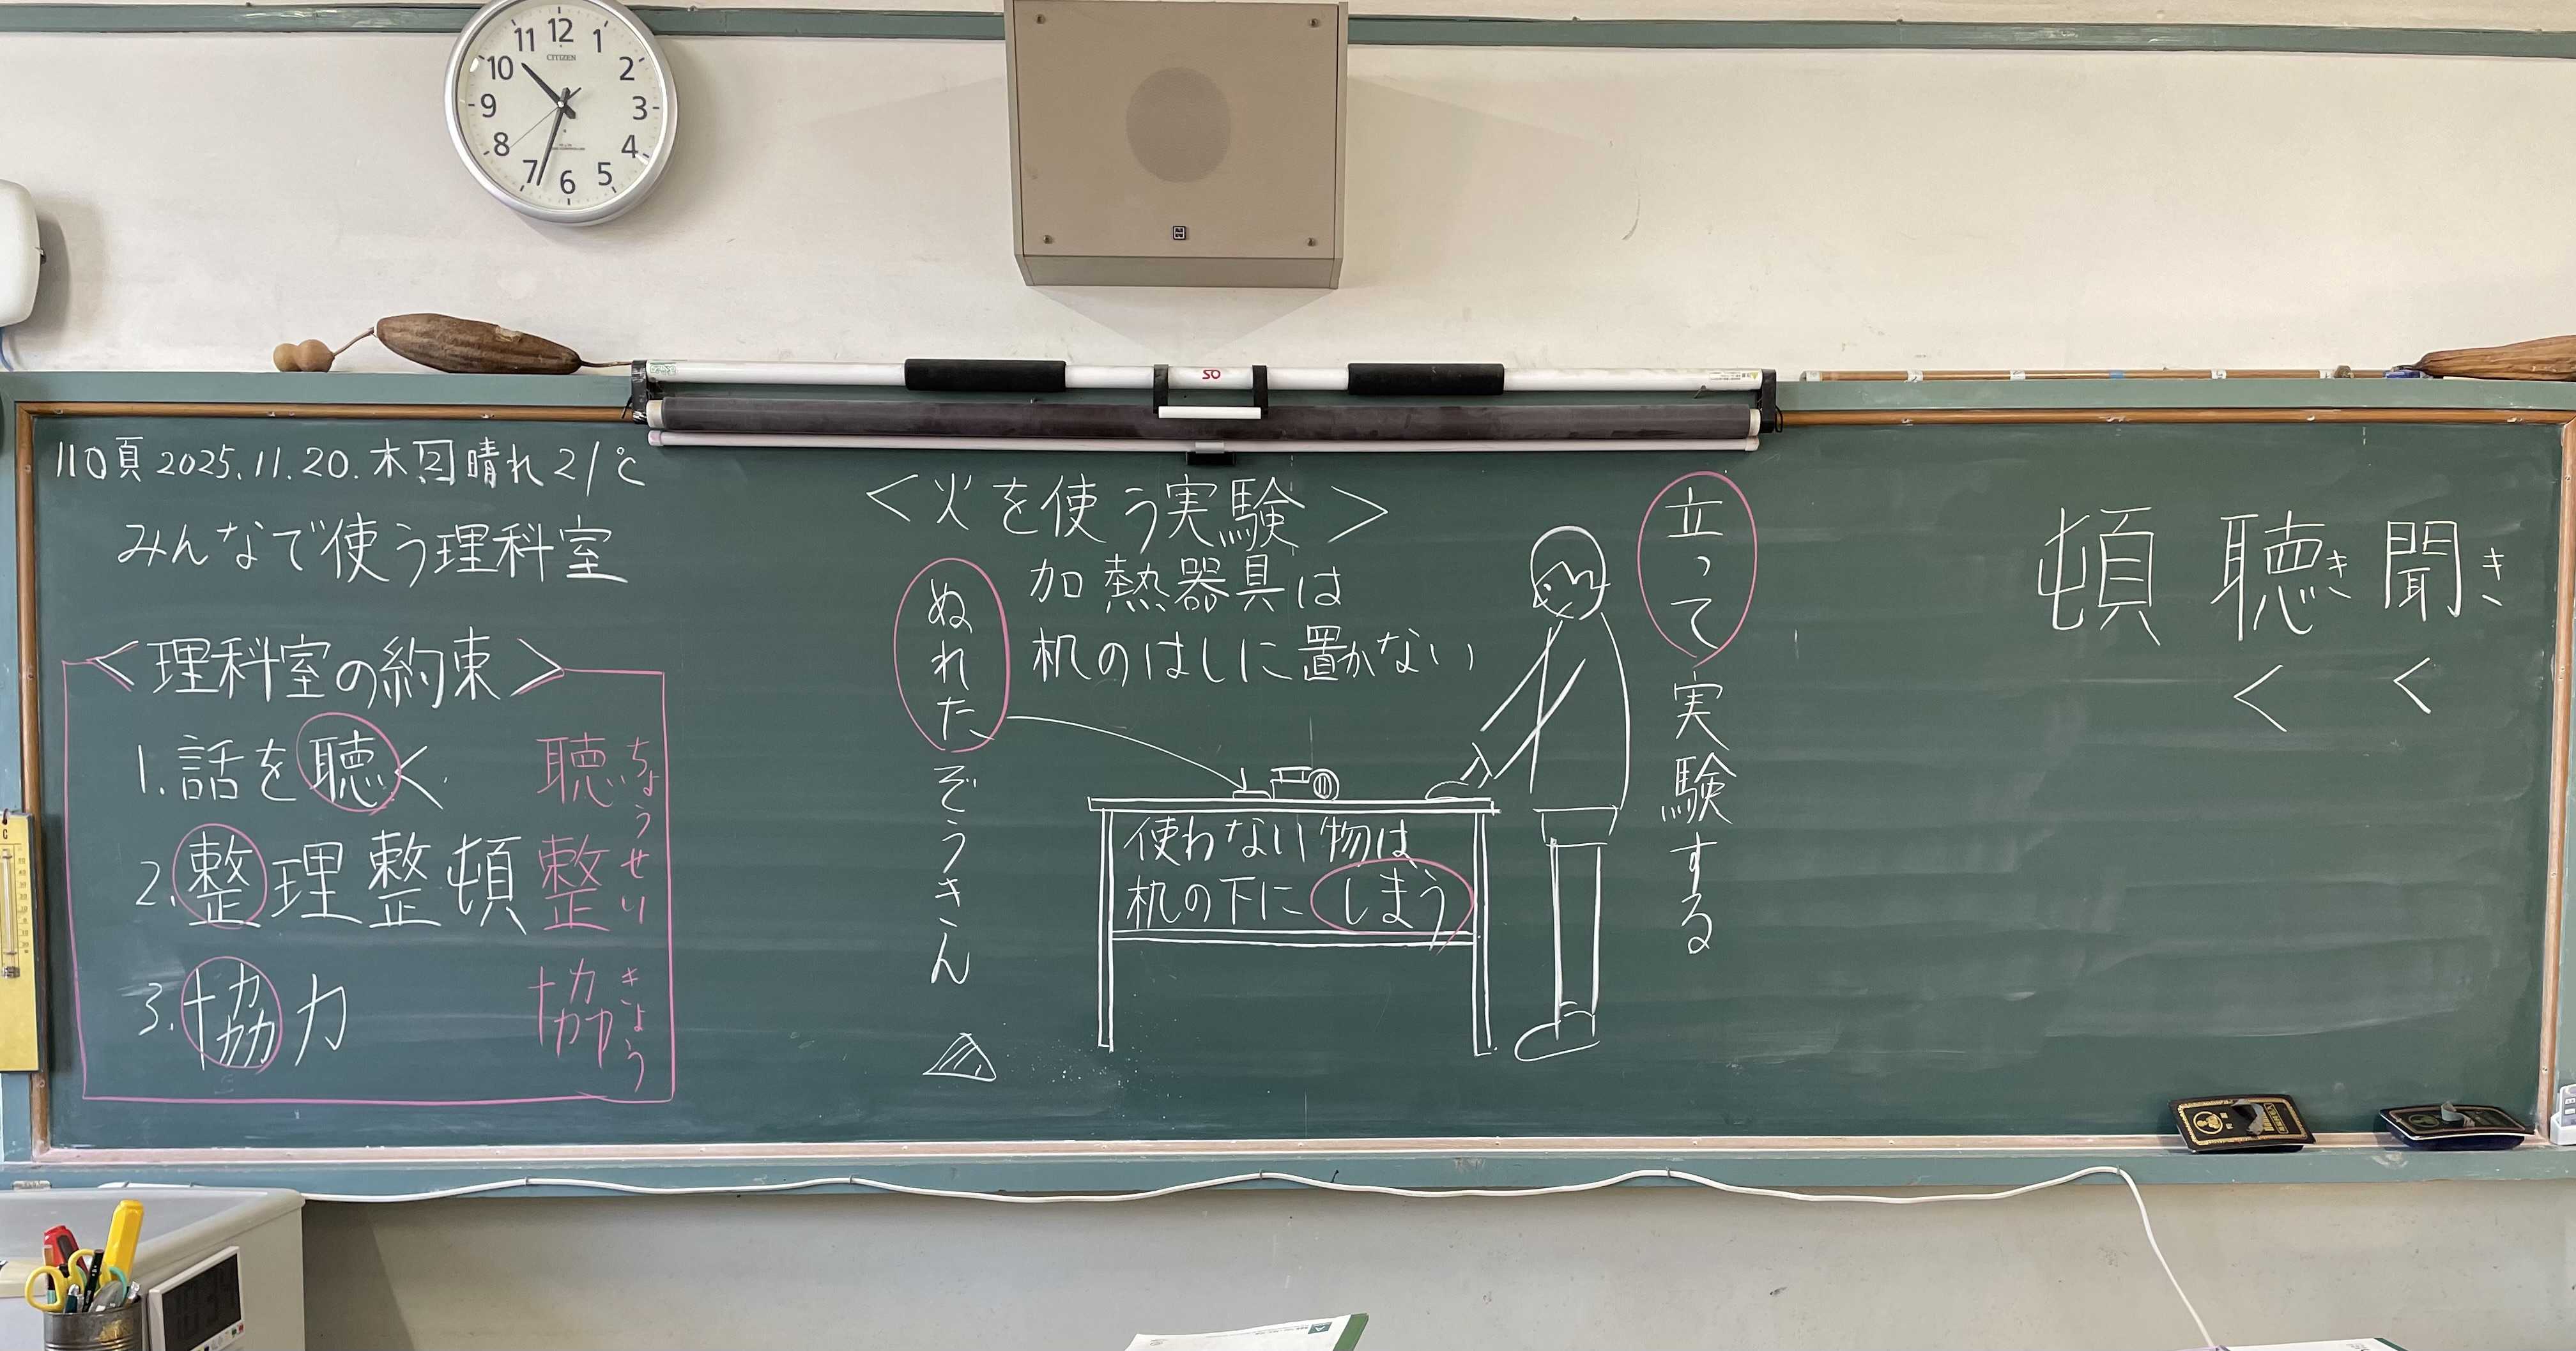 12
1
2
3
4
5
6
7
8
9
10
11
CITIZEN
50
110頁 2025.11.20.木 2 晴れ 21℃
みんなで使う理科室
<理科室の約束>
1.話を聴く 聴 ちょう
2.整理整頓 整 せい
3.協力 協 きょう
<火を使う実験>
加熱器具は
机のはしに置かない
ぬれたぞうきん
使わない物は
机の下にしまう
立って実験する
聞き
く
聴き
く
頓
C